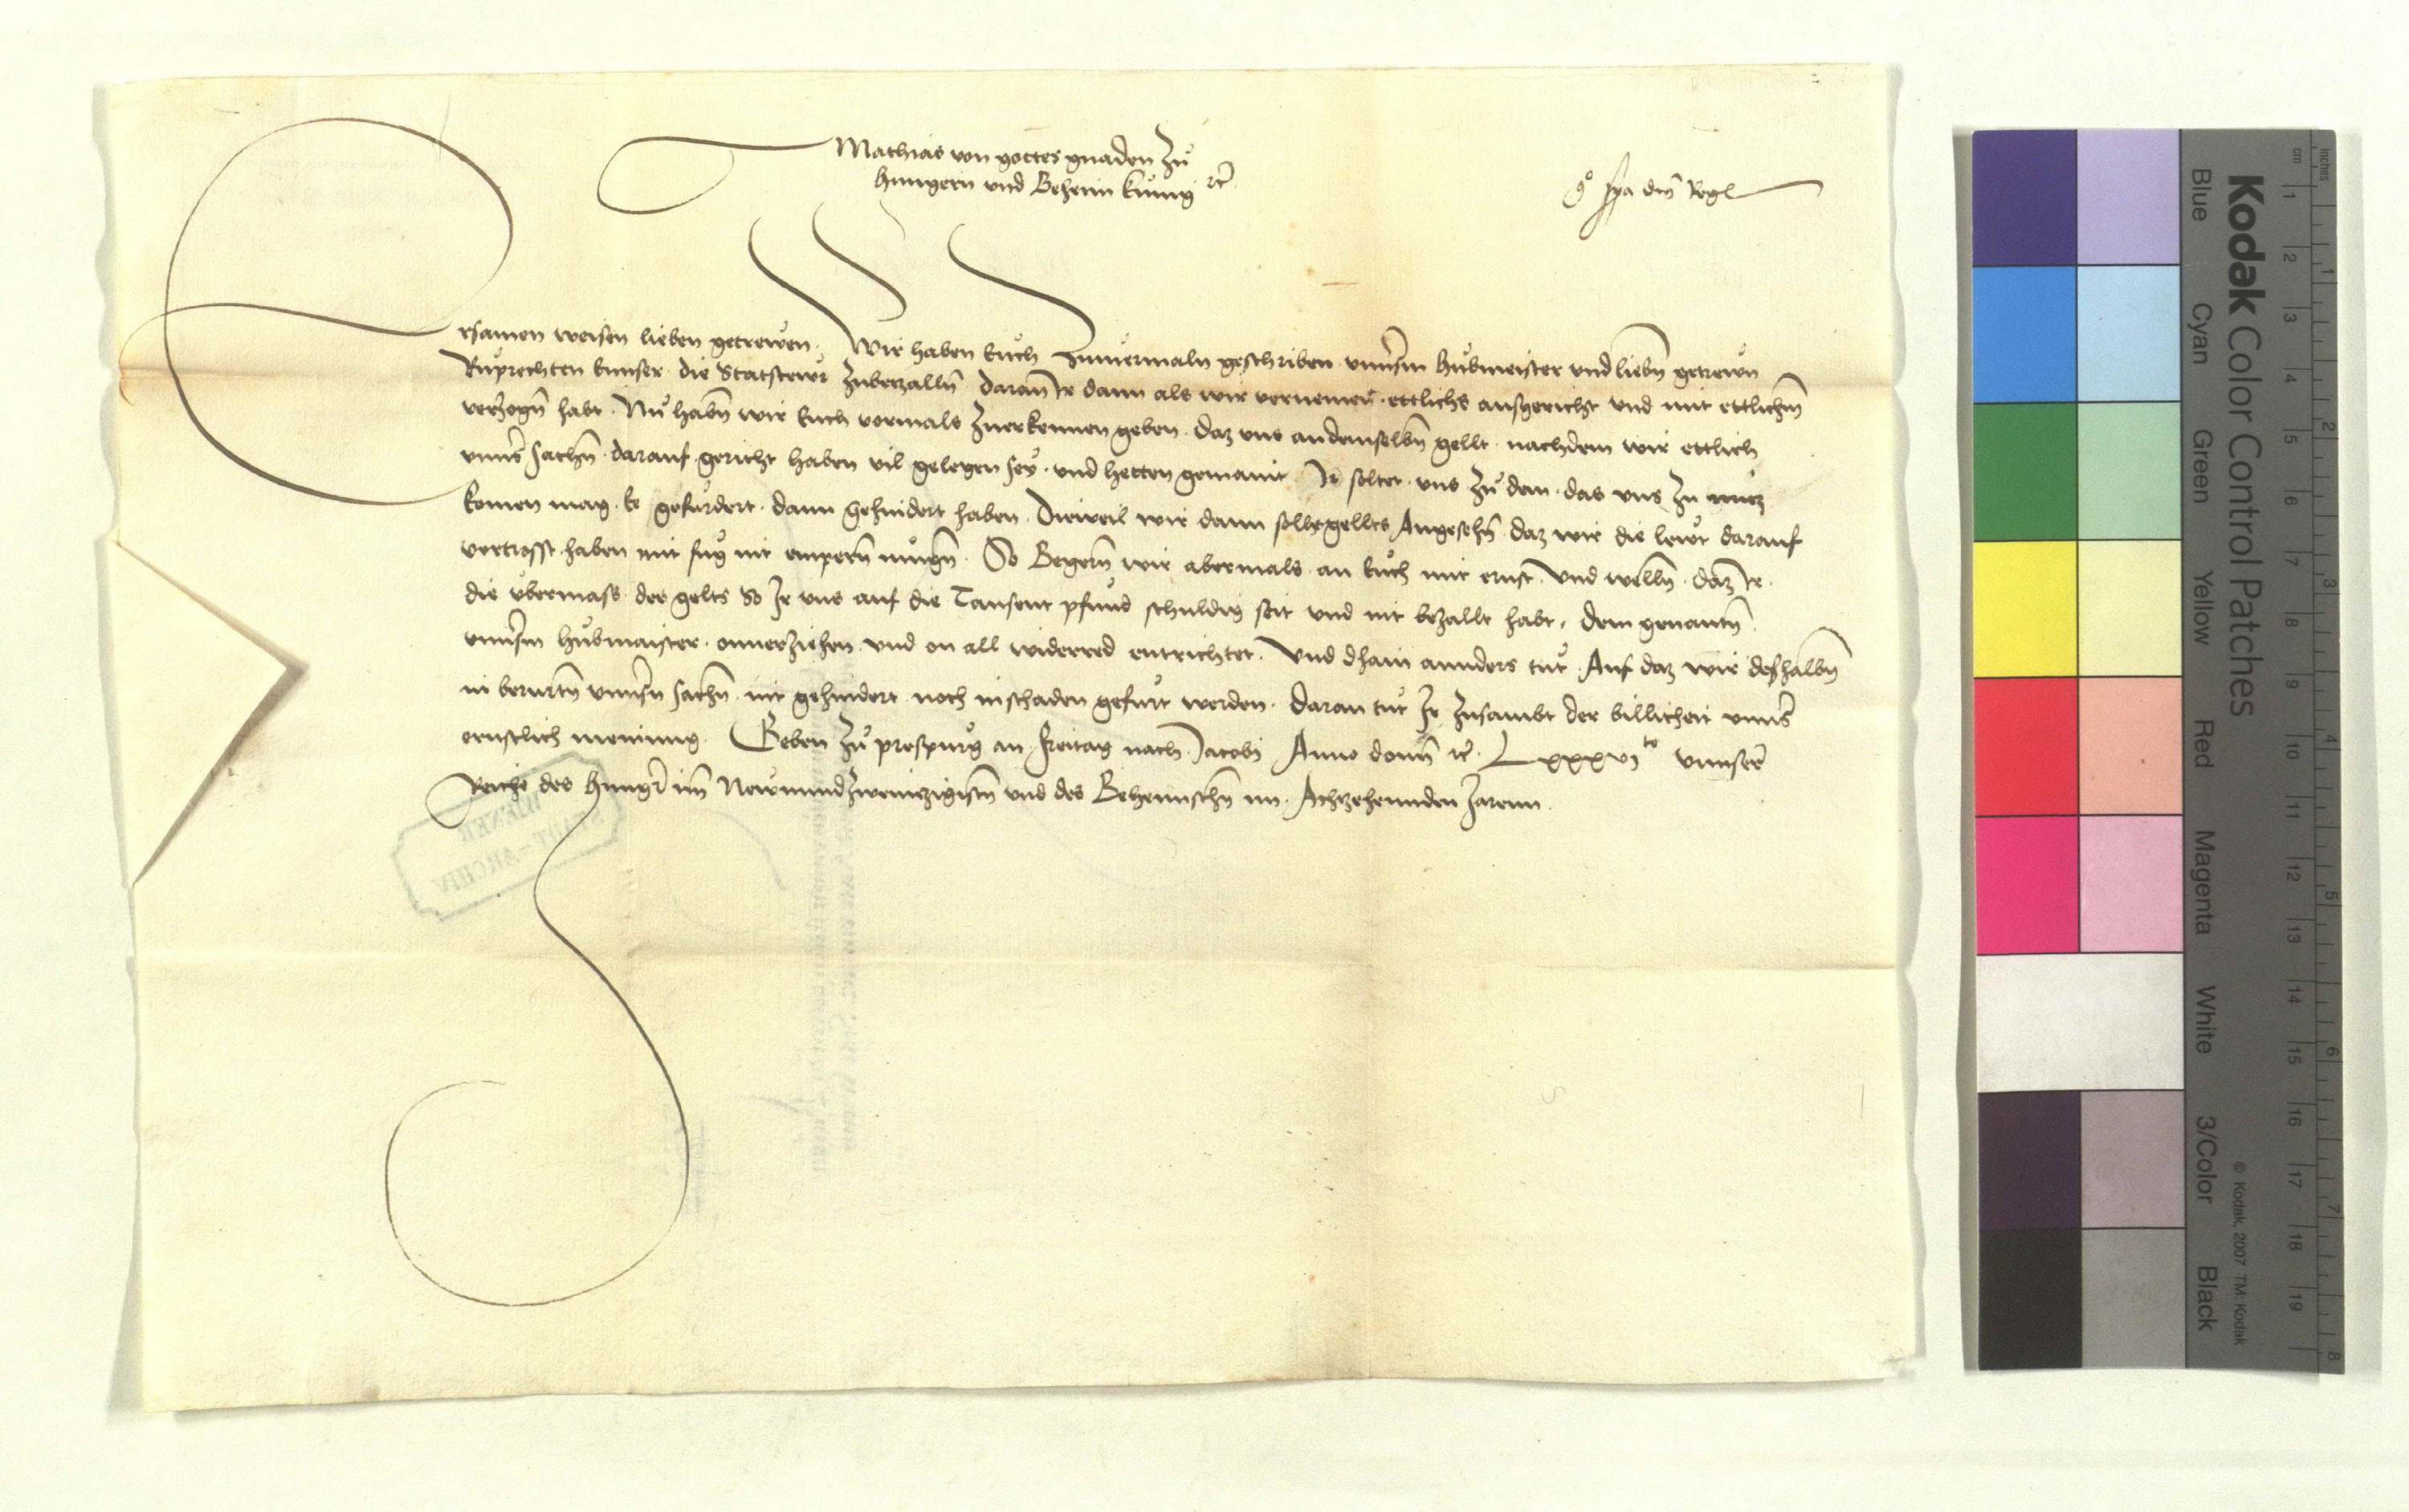 Mathias von gottes gnaden zů
Hungern und Behem kunig etc̃
Ersamen weisen lieben getrewen. Wir haben Euch Innuermaln geschriben unnserm Hůbmeister und liebñ getrewñ
Růprechten Ennser die Statstewr zubeczallñ daran Ir dann als wir vernemen ettlichs ausgericht und mit ettlichm
verzogñ habt. Nů habñ wir Euch vormals zuerkennen geben. daz uns an demselbñ gellt nachdem wir ettlich
unnsr̃ sachñ darauf gericht haben vil gelegen sey. und hetten gemaint Ir soltet uns zů dem das uns zu nutz
komen mag. Ee gefurdert. dann gehindert haben. Dieweil wir dann sollhs gelltes Angesehñ daz wir die lewt darauf
vertrosst haben mit fůg nit emperñ můgñ. So Begerñ wir abermals an Eůch mit ernst und wellñ. daz Ir.
die ůbermass des gelts So Ir uns auf die Tausent pfund schuldig seit und nit bezallt habt. dem genantñ
unnserm Hůbmaister. onuerziehen und on all widerred entrichtet. Und dhain annders tůt. Auf daz wir deshalbñ
in berurtñ unnsern sachñ nit gehindert noch in schaden gefurt werden. Daran tůt Ir zusambt der billicheit unnsr̃
ernstlich meinung. Geben zů prespůrg an Freitag nach Jacobi Anno domĩ etc̃. Lxxxvj to unnserr̃
Reiche des Hungr̃ im̃ Newnundzweintzigistñ und des Behemischñ im Achtzehennden Jarenn.
WIENER
STADT-ARCHIV
Kodak Color Control Patches
© Kodak, 2007 TM: Kodak
Blue Cyan Green Yellow Red Magenta White 3/Color Black
inches 1 2 3 4 5 6 7 8
cm 1 2 3 4 5 6 7 8 9 10 11 12 13 14 15 16 17 18 19